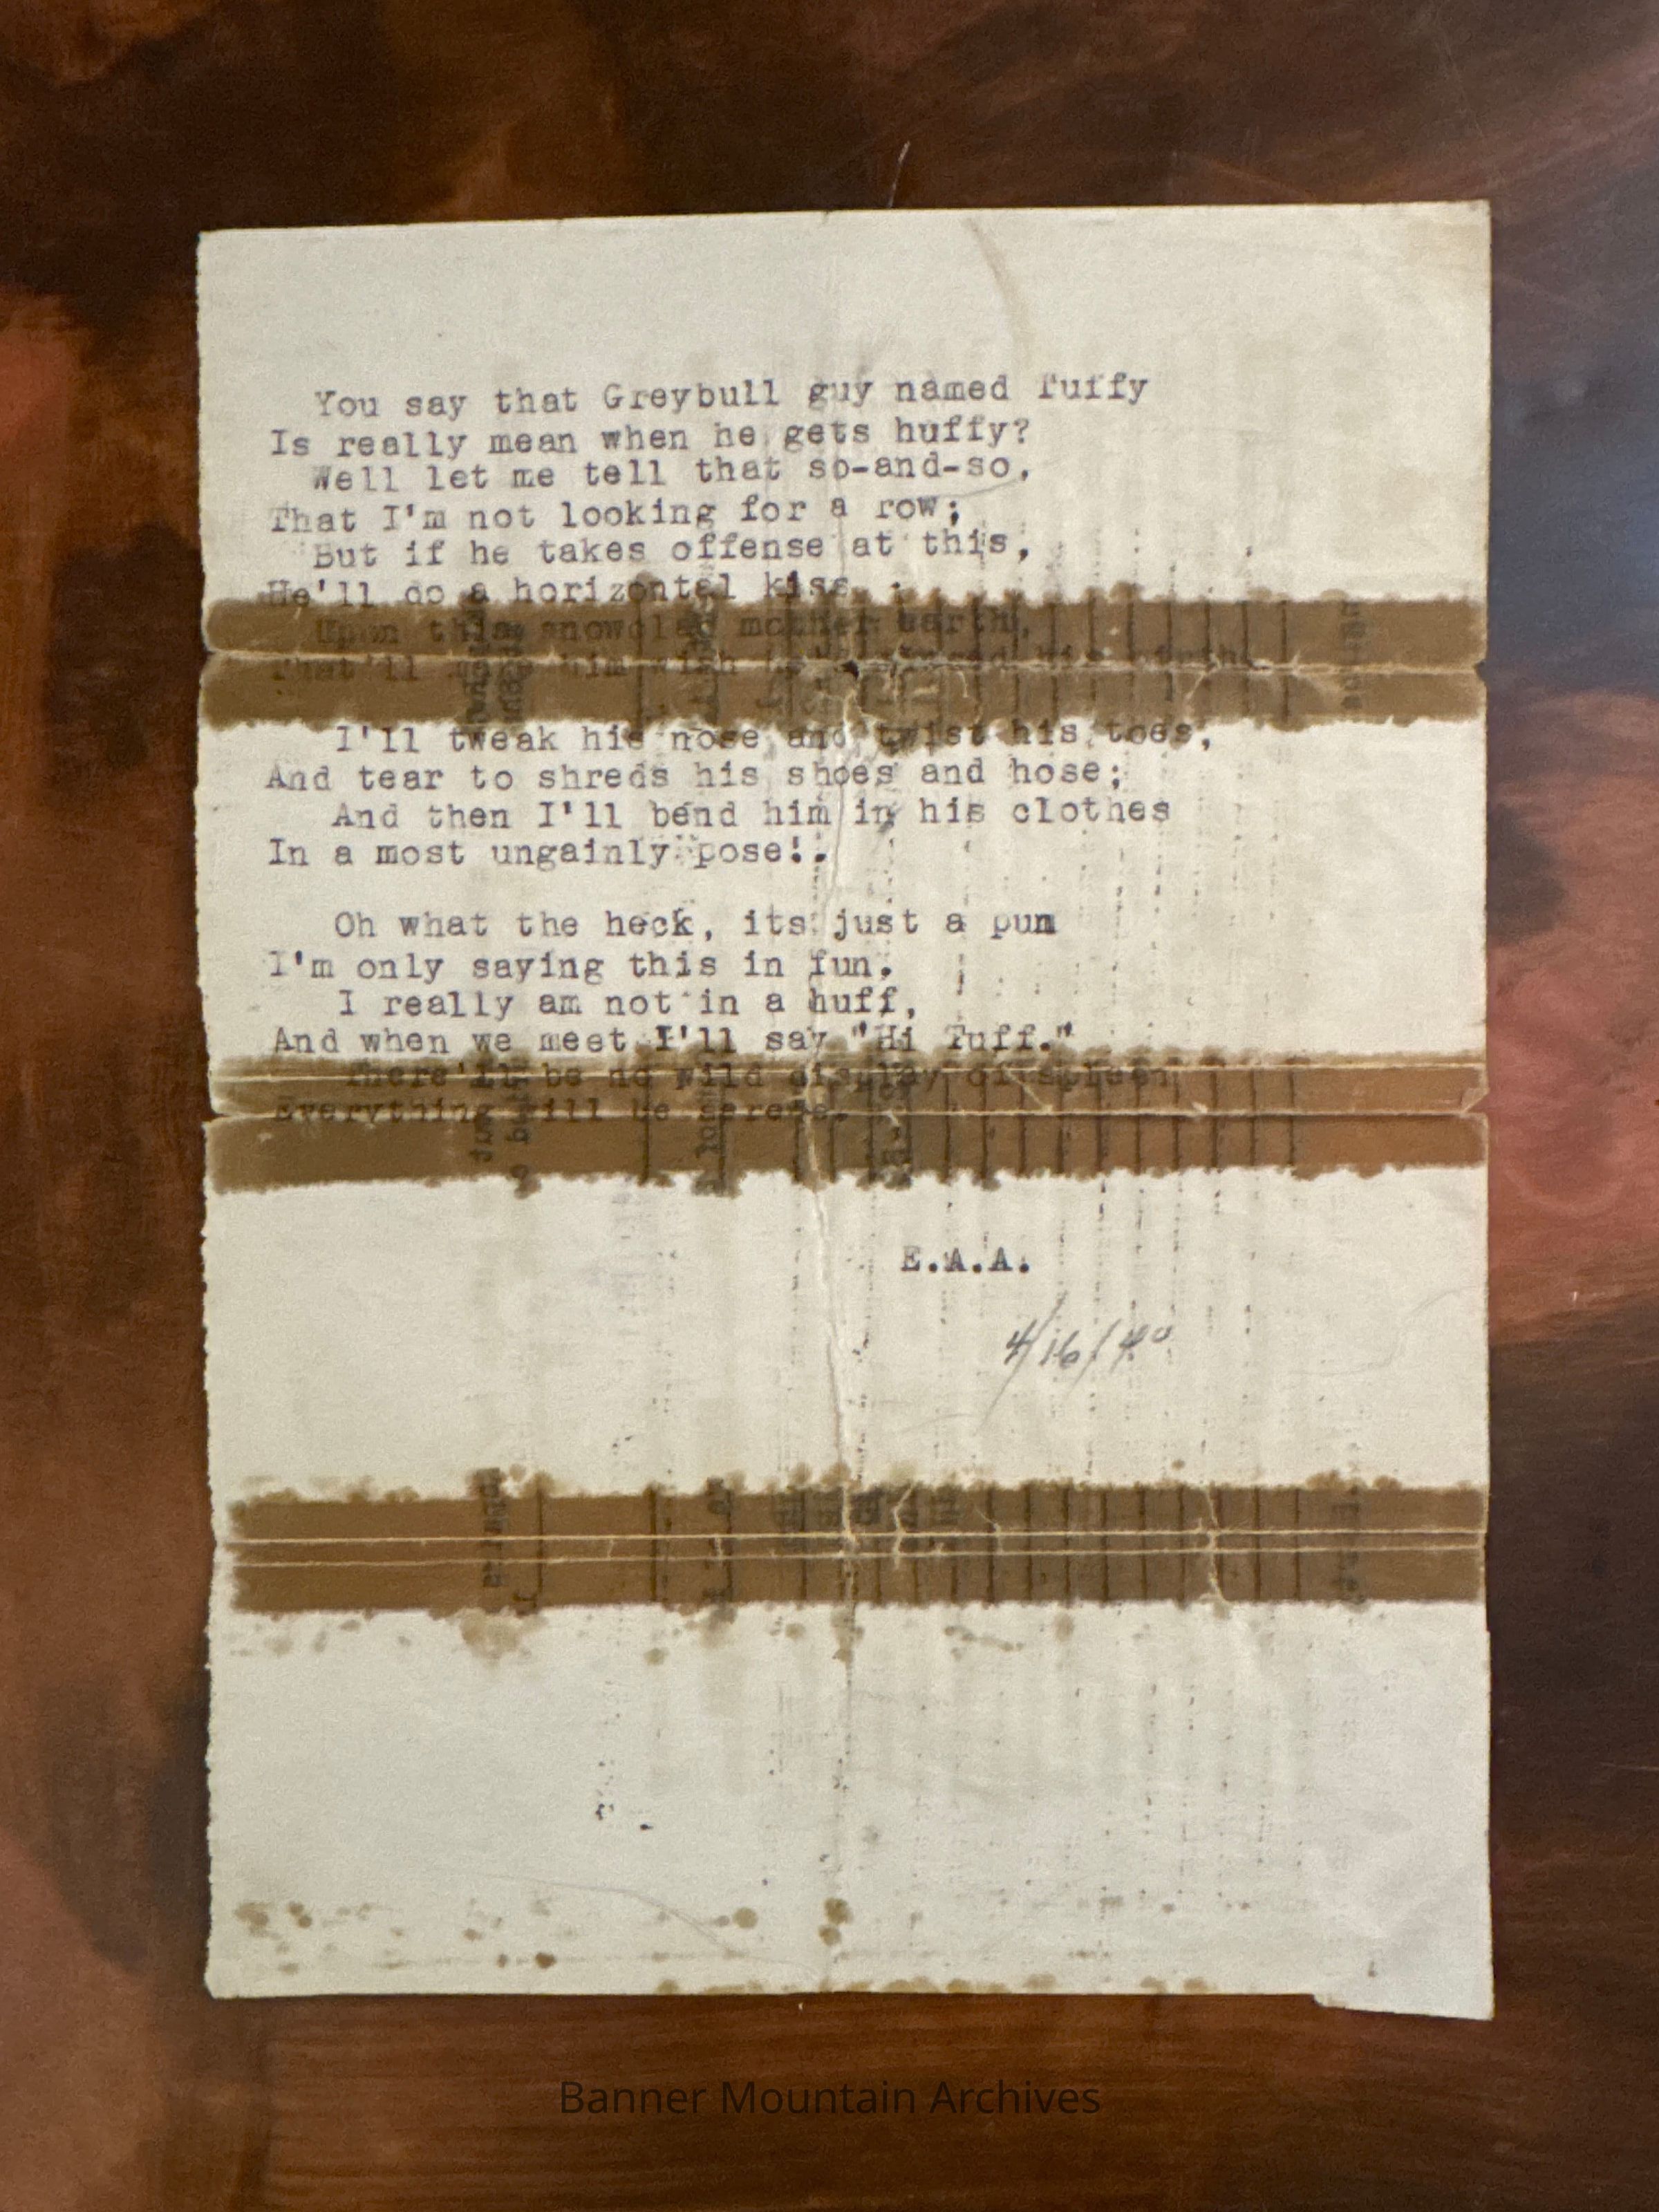 You say that Greybull guy named Tuffy
Is really mean when he gets huffy?
Well let me tell that so-and-so,
That I'm not looking for a row;
But if he takes offense at this,
He'll do a horizontal kiss
Upon this snowclad mother earth,
That'll him wish he his birth.
I'll tweak his nose and twist his toes,
And tear to shreds his shoes and hose;
And then I'll bend him in his clothes
In a most ungainly pose!.
Oh what the heck, its just a pun
I'm only saying this in fun.
I really am not in a huff,
And when we meet I'll say "Hi Tuff."
There'll be no wild display of spleen
Everything will be serene.
E.A.A.
4/16/40
Banner Mountain Archives